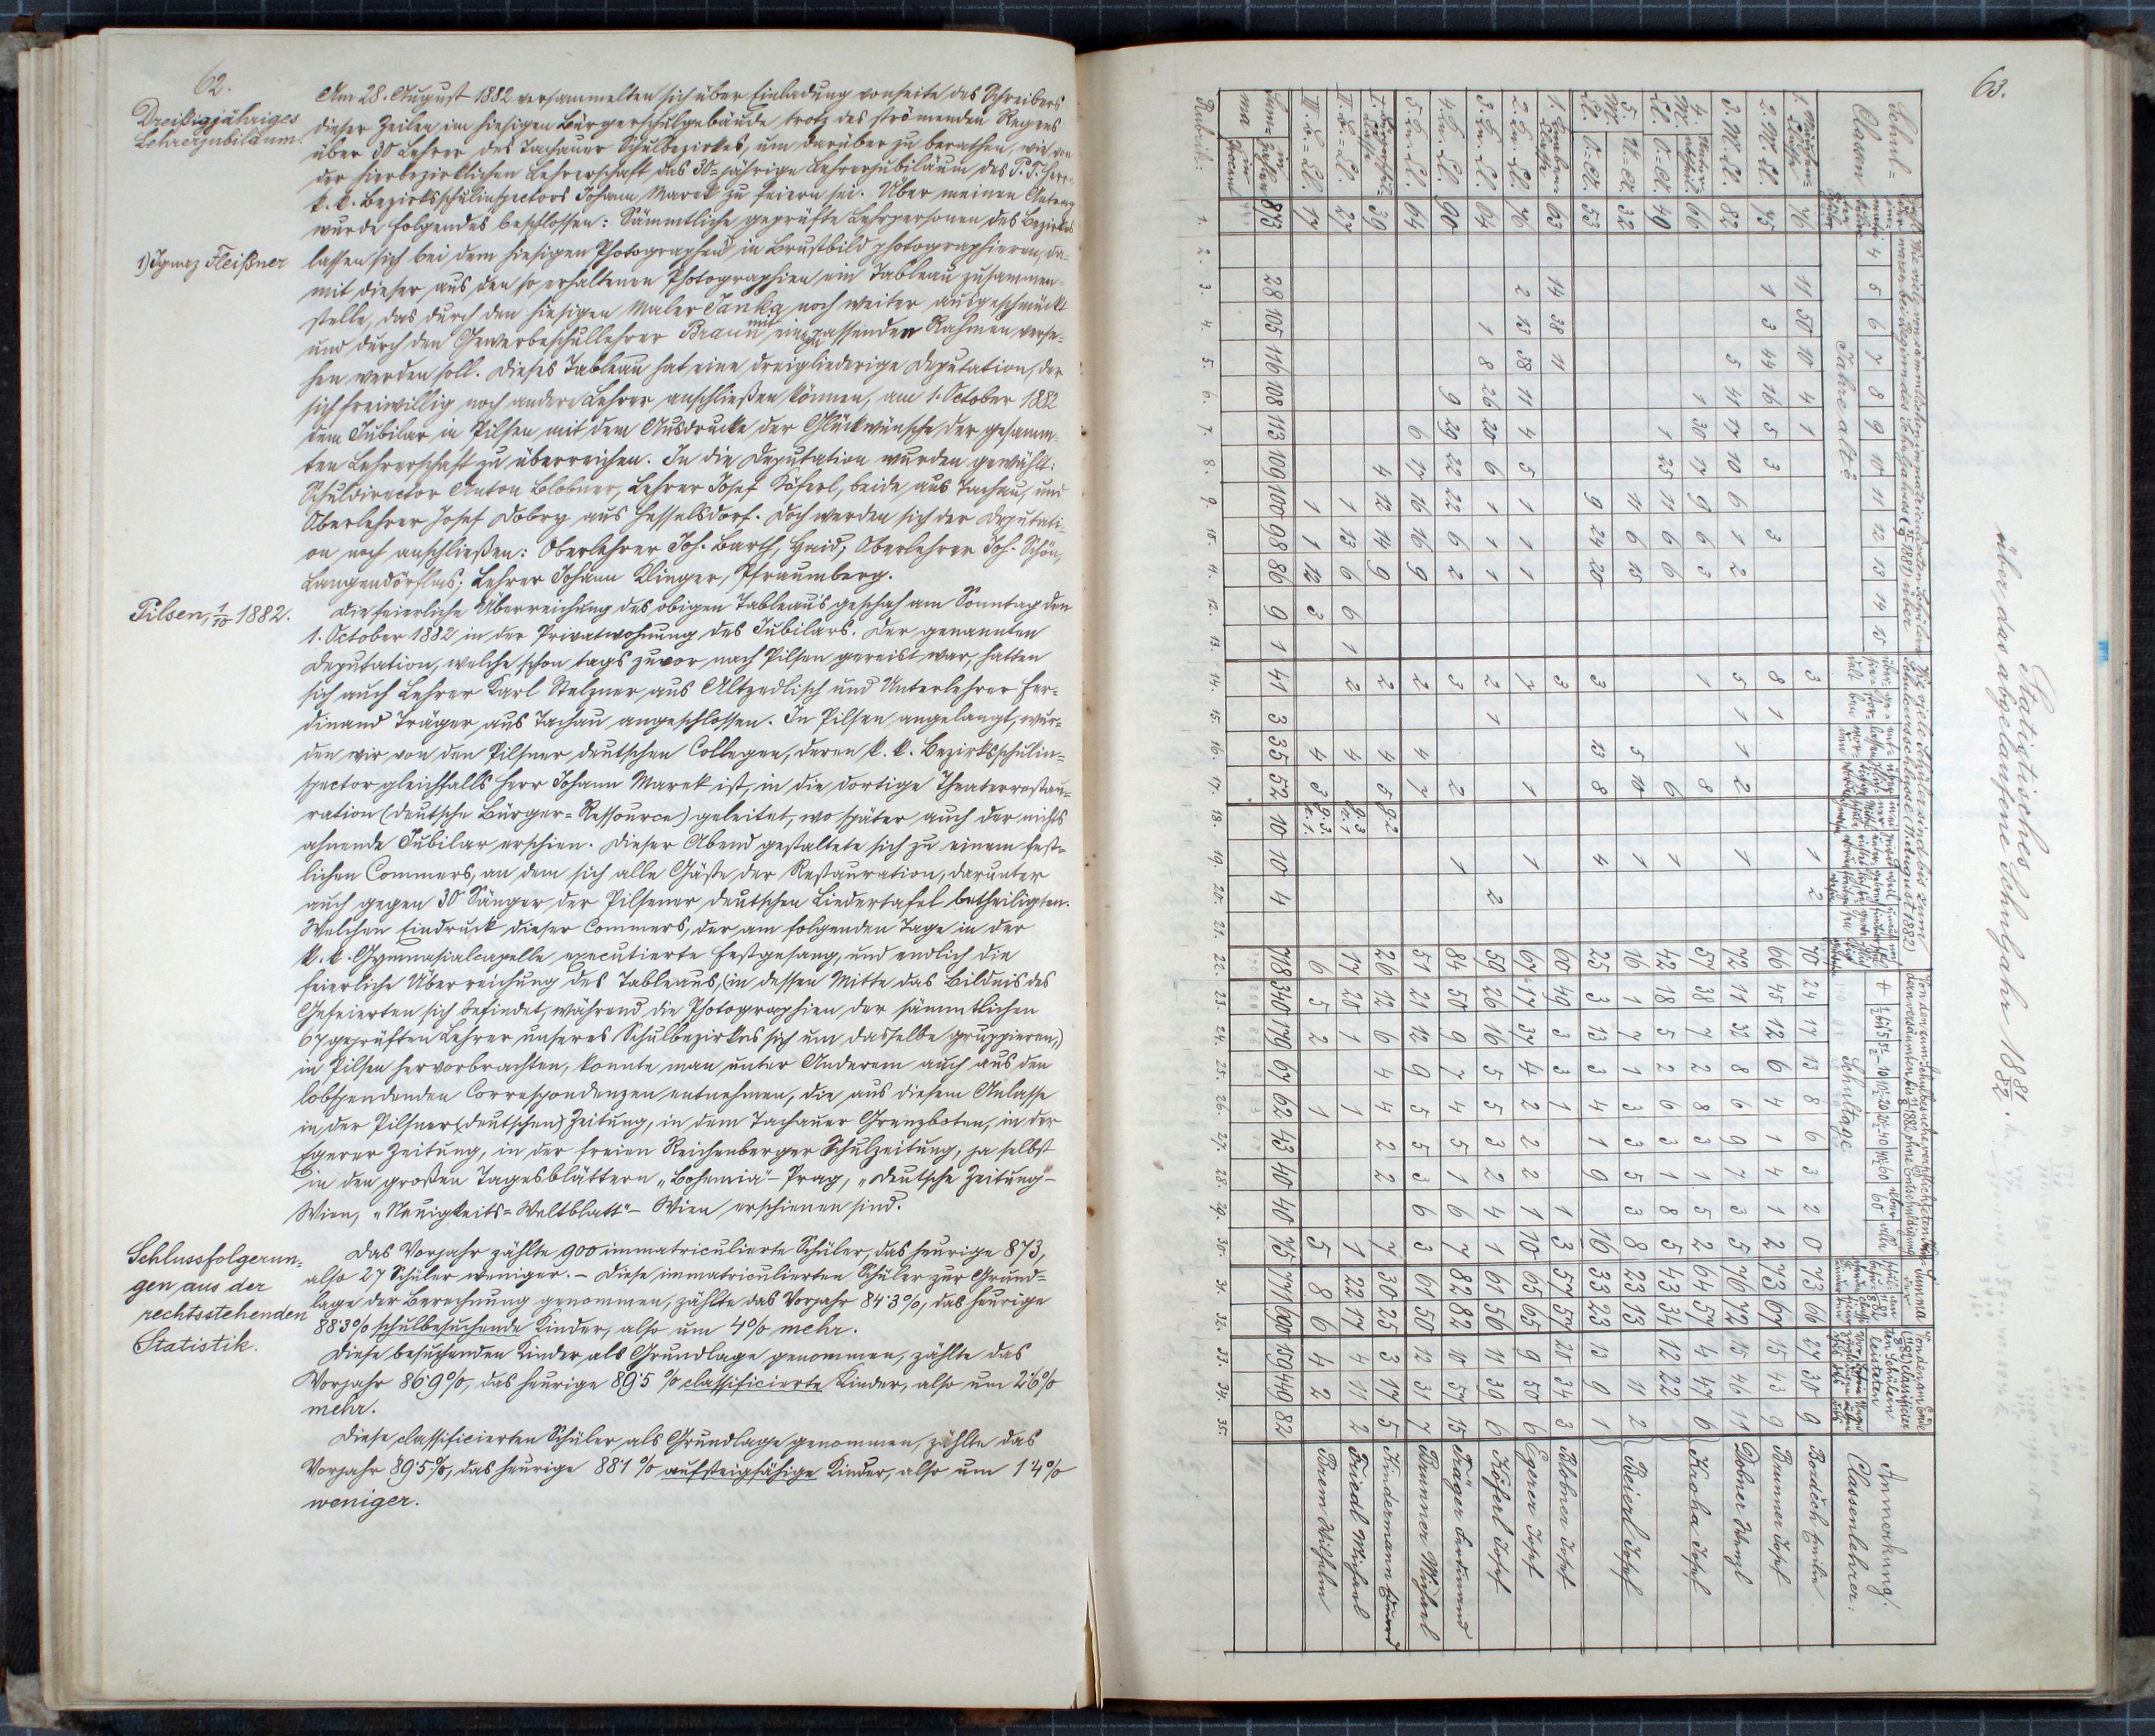 62.
Dreißigjähriges
Lehrerjubiläum.
Am 28. August 1882 versammelten sich über Einladung vonseite des Schreibers
dieser Zeilen im hiesigen Bürgerschulgebäude trotz des strömenden Regens
über 30 Lehrer des Tachauer Schulbezirkes, um darüber zu berathen, wie von
der hierbezirklichen Lehrerschaft das 30-jährige Lehrerjubiläum des P. T. Herrn
k. k. Bezirksschulinspectors Johann Marek zu feiern sei. Über meinen Antrag
wurde folgendes beschlossen: Sämmtliche geprüfte Lehrpersonen des Bezirkes
1) Ignaz Fleißner
lassen sich bei dem hiesigen Photographen 1) in Brustbild photographieren, da-
mit dieser aus den so erhaltenen Photographien ein Tableau zusammen-
stelle, das durch den hiesigen Maler Janka noch weiter ausgeschmückt
und durch den Gewerbeschullehrer Braun mit einem passenden Rahmen verse-
hen werden soll. Dieses Tableau hat eine dreigliederige Deputation, der
sich freiwillig noch andere Lehrer anschließen können, am 1. October 1882
dem Jubilar in Pilsen mit dem Ausdrucke der Glückwünsche der gesamm-
ten Lehrerschaft zu überreichen. In die Deputation wurden gewählt:
Schuldirector Anton Blobner, Lehrer Josef Köferl, beide aus Tachau, und
Oberlehrer Josef Dobry aus Hesselsdorf. Doch werden sich der Deputati-
on noch anschließen: Oberlehrer Joh. Barth, Haid; Oberlehrer Joh. Schön,
Langendörflas; Lehrer Johann Klinger, Pfraumberg.
Pilsen, 1/10 1882.
Die feierliche Überreichung des obigen Tableaus geschah am Sonntag den
1. October 1882 in der Privatwohnung des Jubilars. Der genannten
Deputation, welche schon tags zuvor nach Pilsen gereist war, hatten
sich auch Lehrer Karl Stelzner aus Altzedlisch und Unterlehrer Fer-
dinand Träger aus Tachau angeschlossen. In Pilsen angelangt, wur-
den wir von den Pilsner deutschen Collegen, deren k. k. Bezirksschulin-
spector gleichfalls Herr Johann Marek ist, in die dortige Theaterrestau-
ration (deutsche Bürger-Ressource) geleitet, wo später auch der nichts
ahnende Jubilar erschien. Dieser Abend gestaltete sich zu einem fest-
lichen Commers, an dem sich alle Gäste der Restauration, darunter
auch gegen 30 Sänger der Pilsener deutschen Liedertafel betheiligten.
Welchen Eindruck dieser Commers, der am folgenden Tage in der
k. k. Gymnasialcapelle executierte Festgesang, und endlich die
feierliche Überreichung des Tableaus, (in dessen Mitte das Bildnis des
Gefeierten sich befindet, während die Photographien der sämmtlichen
67 geprüften Lehrer unseres Schulbezirkes sich um dasselbe gruppieren,)
in Pilsen hervorbrachten, konnte man unter Anderem auch aus den
lobspendenden Correspondenzen entnehmen, die aus diesem Anlasse
in der Pilsner (deutschen) Zeitung, in dem Tachauer Grenzboten, in der
Egerer Zeitung, in der freien Reichenberger Schulzeitung, ja selbst
in den großen Tagesblättern „Bohemia" - Prag, „Deutsche Zeitung" -
Wien, „Neuigkeits-Weltblatt" - Wien erschienen sind.
Schlussfolgerun-
gen aus der
rechtsstehenden
Statistik.
Das Vorjahr zählte 900 immatriculierte Schüler, das heurige 873,
also 27 Schüler weniger. - Diese immatriculierten Schüler zur Grund-
lage der Berechnung genommen, zählte das Vorjahr 84·3%, das heurige
88·3% schulbesuchende Kinder, also um 4% mehr.
Diese besuchenden Kinder als Grundlage genommen, zählte das
Vorjahr 86·9%, das heurige 89·5% classificierte Kinder, also um 2·6%
mehr.
Diese classificierten Schüler als Grundlage genommen, zählte das
Vorjahr 89·5%, das heurige 88·1% aufsteigfähige Kinder, also um 1·4%
weniger.
63.
Statistisches
über das abgelaufene Schuljahr 1881/82.
Schul-
Classen
4 5 6 7 8 9 10 11 12 13 14 15
Jahre alt?
Schultage
Anmerkung.
Classenlehrer:
1. Mädchen-Classe 76 11 50 10 4 1 3 1 2 70 24 17 13 8 6 3 2 0 73 66 27 30 9 Bozdĕch Emilie
2. M. Cl. 75 1 3 44 16 5 3 3 8 1 66 45 12 6 4 1 4 1 2 73 67 15 43 9 Brunner Josef
3. M. Cl. 82 5 41 17 10 6 1 2 5 1 1 2 1 72 11 32 8 6 9 7 3 5 76 72 15 46 11 Dobner Wenzl
4. M. Cl. 66 1 30 17 9 6 3 1 8 57 38 7 2 8 3 1 5 2 64 57 4 47 6 Kroha Josef
49 1 25 11 6 6 6 1 42 18 5 2 6 3 1 8 5 43 34 12 22
5. M. Cl. 32 11 6 15 5 10 1 16 1 7 1 3 3 5 3 8 23 13 11 2 Beierl Josef
53 9 24 20 3 13 8 4 25 3 13 3 4 1 9 16 33 23 13 9 1
1. Knaben-Classe 63 14 38 11 3 60 49 3 3 1 1 3 57 57 20 34 3 Blobner Josef
2. Kn. Cl. 76 2 13 38 11 4 5 1 1 1 7 1 1 67 17 37 4 2 2 2 1 10 65 65 9 50 6 Egerer Josef
3. Kn. Cl. 64 1 8 26 20 6 1 1 1 2 1 2 59 26 16 5 5 3 2 4 1 61 56 11 39 6 Köferl Josef
4. Kn. Cl. 90 9 29 22 22 6 2 3 2 1 84 50 9 7 4 5 1 6 7 82 82 10 57 15 Träger Ferdinand
5. Kn. Cl. 64 6 17 16 16 9 2 4 7 51 21 12 9 5 5 3 6 3 61 50 12 31 7 Brunner Michael
I. Bürgerschul-Classe 39 4 12 14 9 2 4 5 26 12 6 4 4 2 2 7 30 25 3 17 5 Kindermann Eduard
II. B. Cl. 27 1 13 6 6 1 2 4 17 20 1 1 1 22 17 4 11 2 Friedl Michael
III. B. Cl. 17 1 1 12 3 4 3 6 5 2 1 5 8 6 4 2 Brem Wilhelm
Summa in Zahlen 873 28 105 116 108 113 109 100 98 86 9 1 41 3 35 52 10 10 4 718 340 179 67 62 43 40 40 75 771 690 159 449 82
Rubrik: 1. 2. 3. 4. 5. 6. 7. 8. 9. 10. 11. 12. 13. 14. 15. 16. 17. 18. 19. 20. 21. 22. 23. 24. 25. 26. 27. 28. 29. 30. 31. 32. 33. 34. 35.